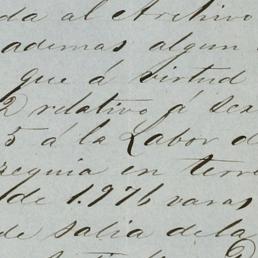 da al Archivo
ademas algun
que á virtud
2 relativo á sex
5 á la Labor d
zequia en terre
de 1.976 varas
de salia de la